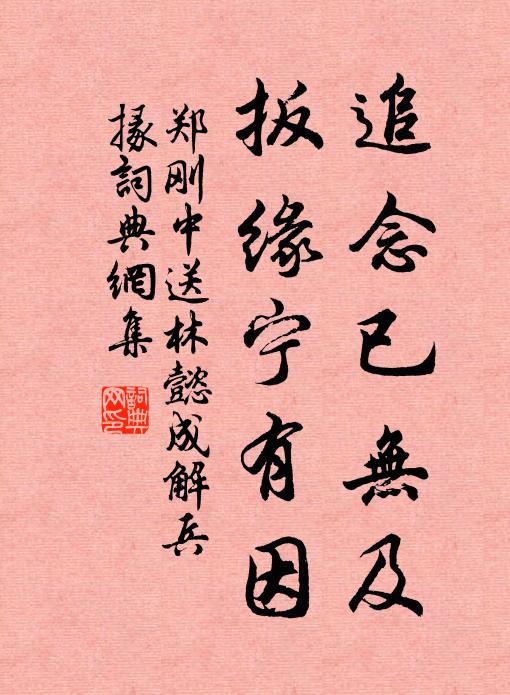 追念已無及
扳緣宁有因
郑刚中送林懿成解兵
掾詞典網集
詞典网印